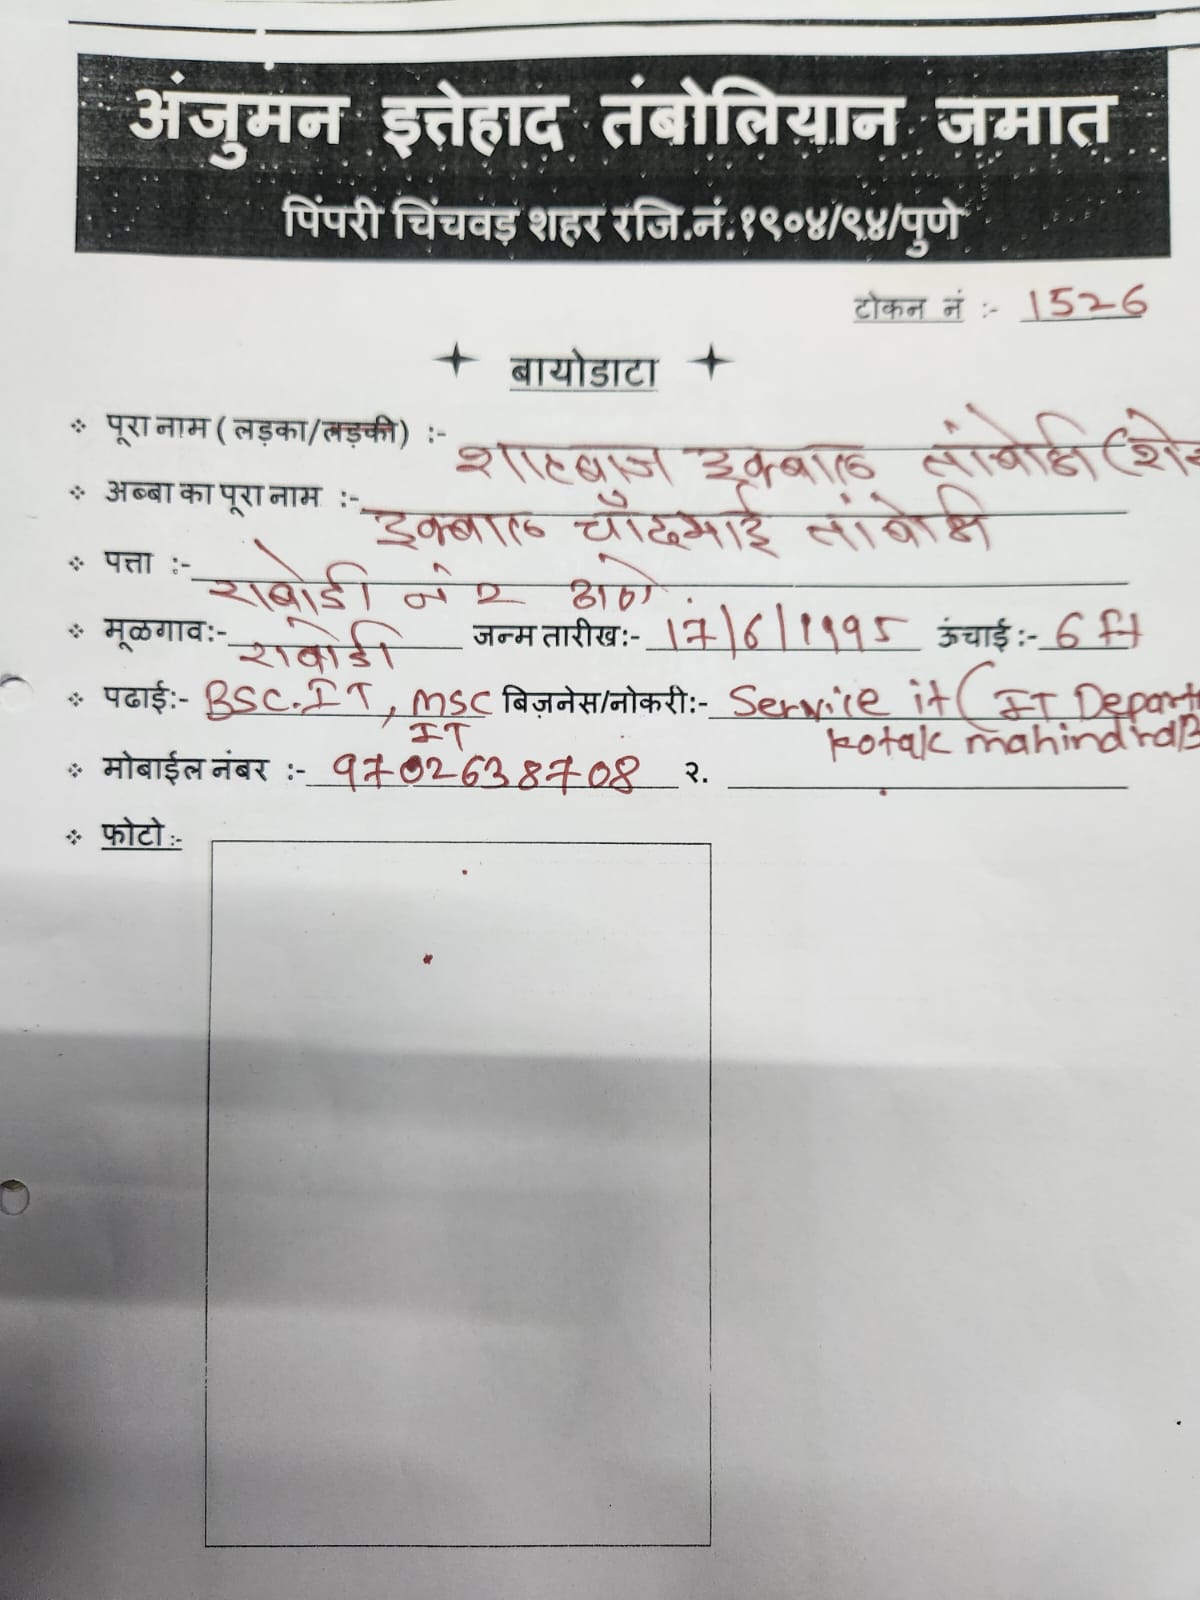 अंजुमन इत्तेहाद तंबोलियान जमात
पिंपरी चिंचवड़ शहर रजि.नं.१९०४/९४/पुणे
टोकन नं :- 1526
बायोडाटा
पूरा नाम ( लड़का/लड़की) :- शाहबाज इक्बाल तांबोळी (शेख
अब्बा का पूरा नाम :- इक्बाल चाँदभाई तांबोळी
पत्ता :- राबोडी नं 2 ठाणे.
मूळगाव:- राबोडी जन्म तारीख:- 17/6/1995 ऊंचाई :- 6 ft
पढाई:- BSC.IT, MSC IT बिज़नेस/नोकरी:- Service it ( IT Depart
kotak mahindra B
मोबाईल नंबर :- 9702638708 २.
फोटो :-